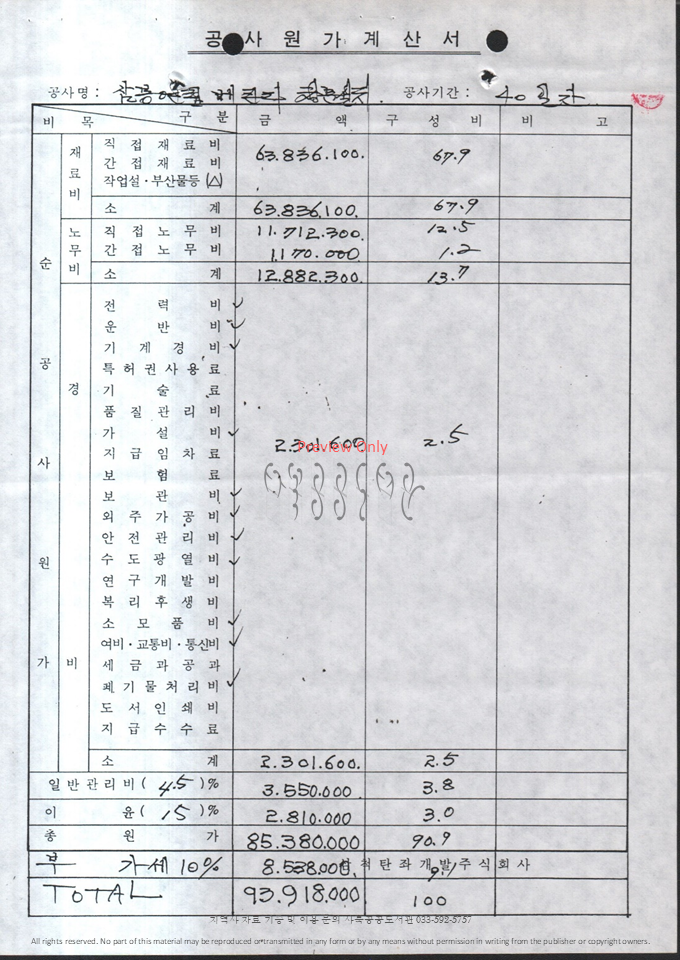 공 사 원 가 계 산 서
공사명 : 공사기간 : 40 일간
비 목 구 분 금 액 구 성 비 비 고
순 공 사 원 가
재 료 비
직 접 재 료 비 63.836.100. 67.9
간 접 재 료 비
작업설·부산물등 (△)
소 계 63.836.100. 67.9
노 무 비
직 접 노 무 비 11.712.300. 12.5
간 접 노 무 비 1.170.000. 1.2
소 계 12.882.300. 13.7
경 비
전 력 비 ✓
운 반 비 ✓
기 계 경 비 ✓
특 허 권 사 용 료
기 술 료
품 질 관 리 비
가 설 비 ✓ 2.301.600. 2.5
Preview Only
지 급 임 차 료
보 험 료
보 관 비 ✓
외 주 가 공 비 ✓
안 전 관 리 비 ✓
수 도 광 열 비 ✓
연 구 개 발 비
복 리 후 생 비
소 모 품 비 ✓
여비·교통비·통신비 ✓
세 금 과 공 과
폐 기 물 처 리 비 ✓
도 서 인 쇄 비
지 급 수 수 료
소 계 2.301.600. 2.5
일 반 관 리 비 ( 4.5 ) % 3.550.000 3.8
이 윤 ( 15 ) % 2.810.000 3.0
총 원 가 85.380.000 90.9
부 가 세 10% 8.538.000 9.1
삼 척 탄 좌 개 발 주 식 회 사
TOTAL 93.918.000 100
지역사 자료 기증 및 이용 문의 사북공공도서관 033-592-5757
All rights reserved. No part of this material may be reproduced or transmitted in any form or by any means without permission in writing from the publisher or copyright owners.